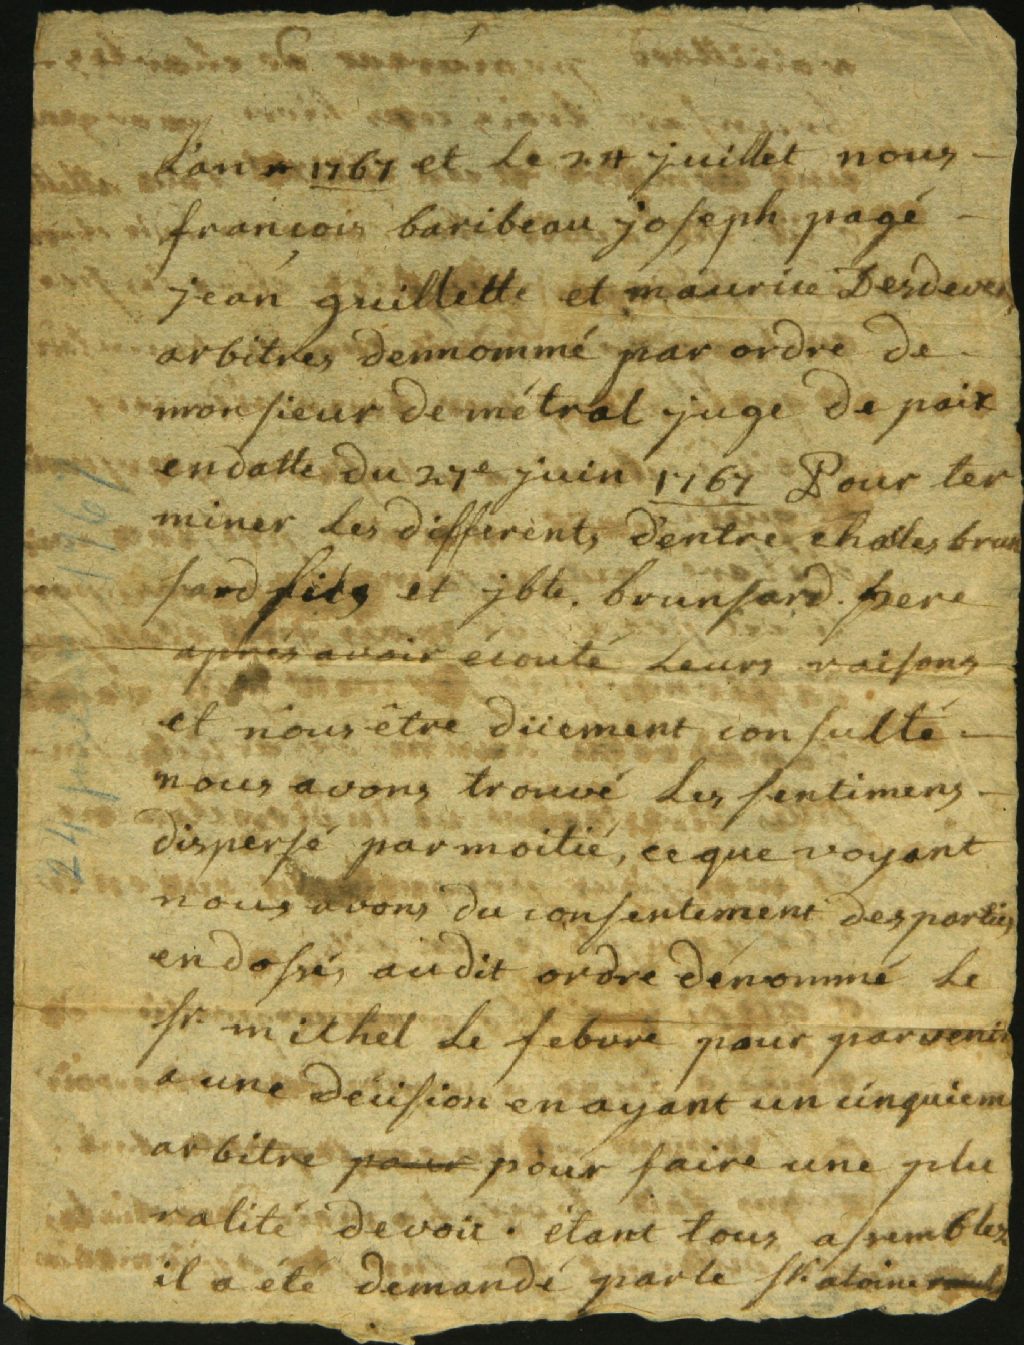 L'an 1767 et le 24 juillet nous
françois baribeau joseph pagé
jean guillette et maurice Desdever
arbitres dennommé par ordre de
monsieur de métral juge de paix
endatte du 27e juin 1767 Pour ter
miner les differents d'entre charles brun
sard fils et jbte. brunsard pere
après avoir écouté leurs raisons
et nous être düement consulté
nous avons trouvé les sentimens
dispersé par moitié, ce que voyant
nous avons du consentement des parties
endossés audit ordre dénommé le
sr. mithel le febvre pour parvenir
a une décision en ayant un cinquiem
arbitre pour pour faire une plu
ralité de voit. étant tous assemblez
il a été demandé par le sr. atoine
24 juillet 1767